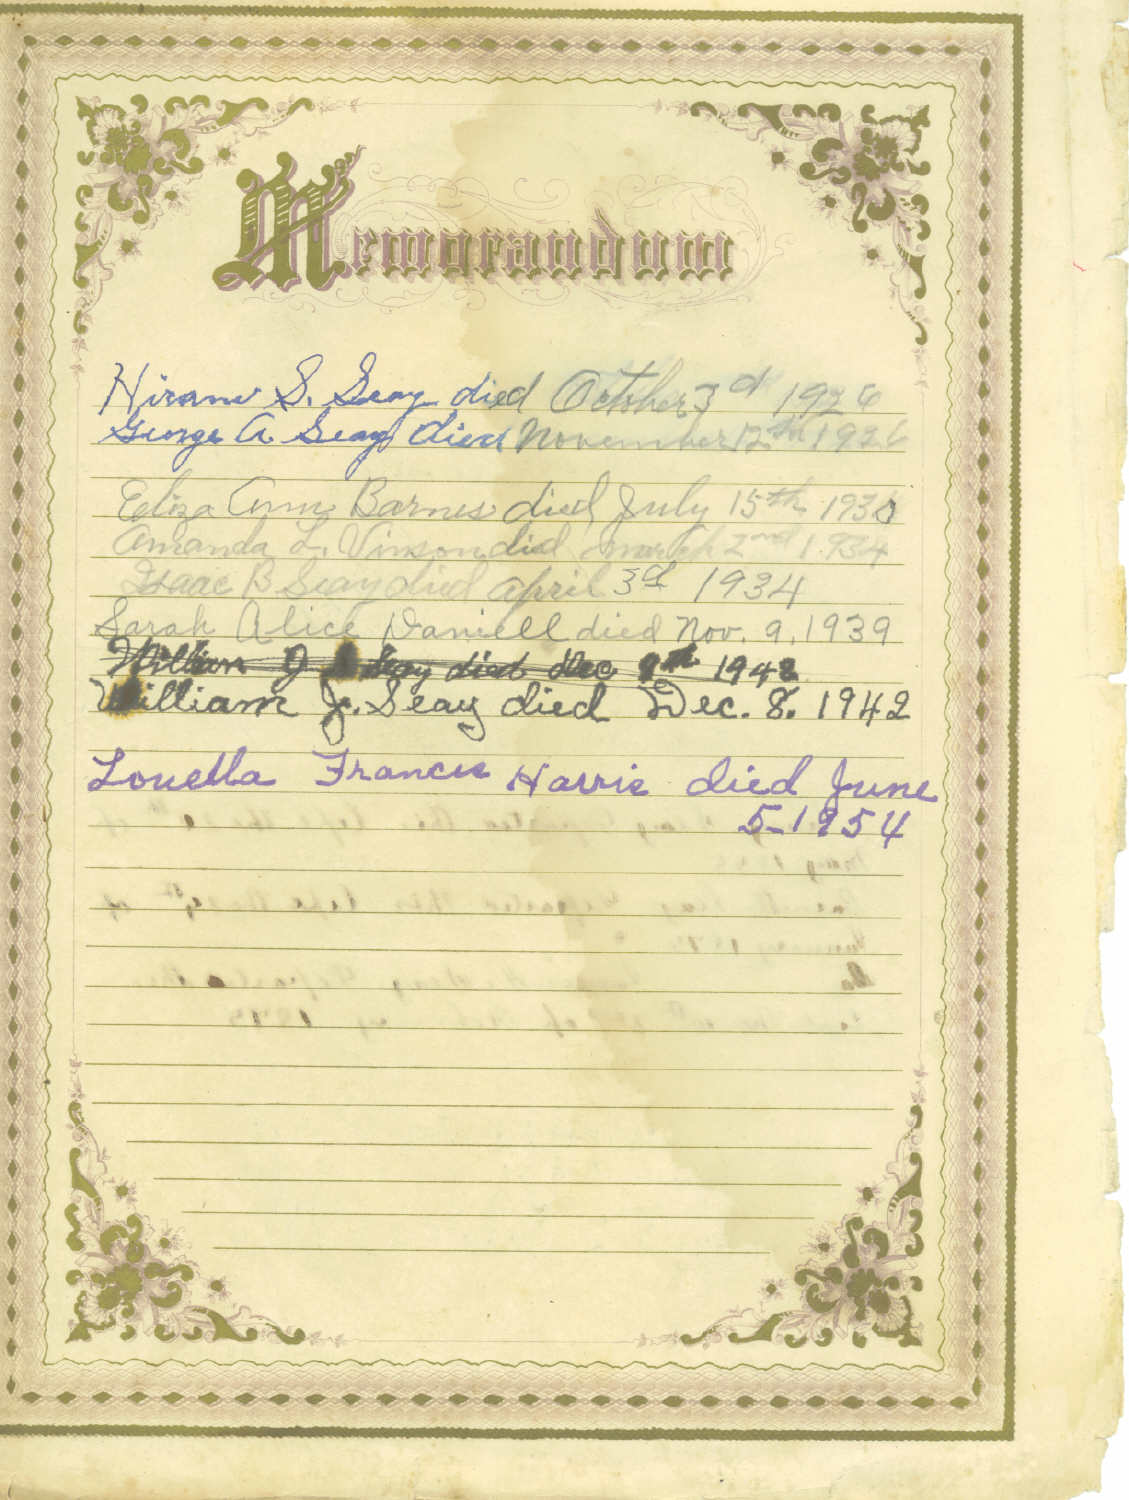 Memorandum
Hiram S. Seay died October 3d 1926
George A. Seay died November 12th 1926
Eliza Ann Barnes died July 15th 1930
Amanda L. Vinson died march 2nd 1934
Isaac B Seay died april 3d 1934
Sarah Alice Daniell died Nov. 9, 1939
William J Seay died Dec 9th 1942
William J. Seay died Dec. 8. 1942
Louella Francis Harris died June
5-1954